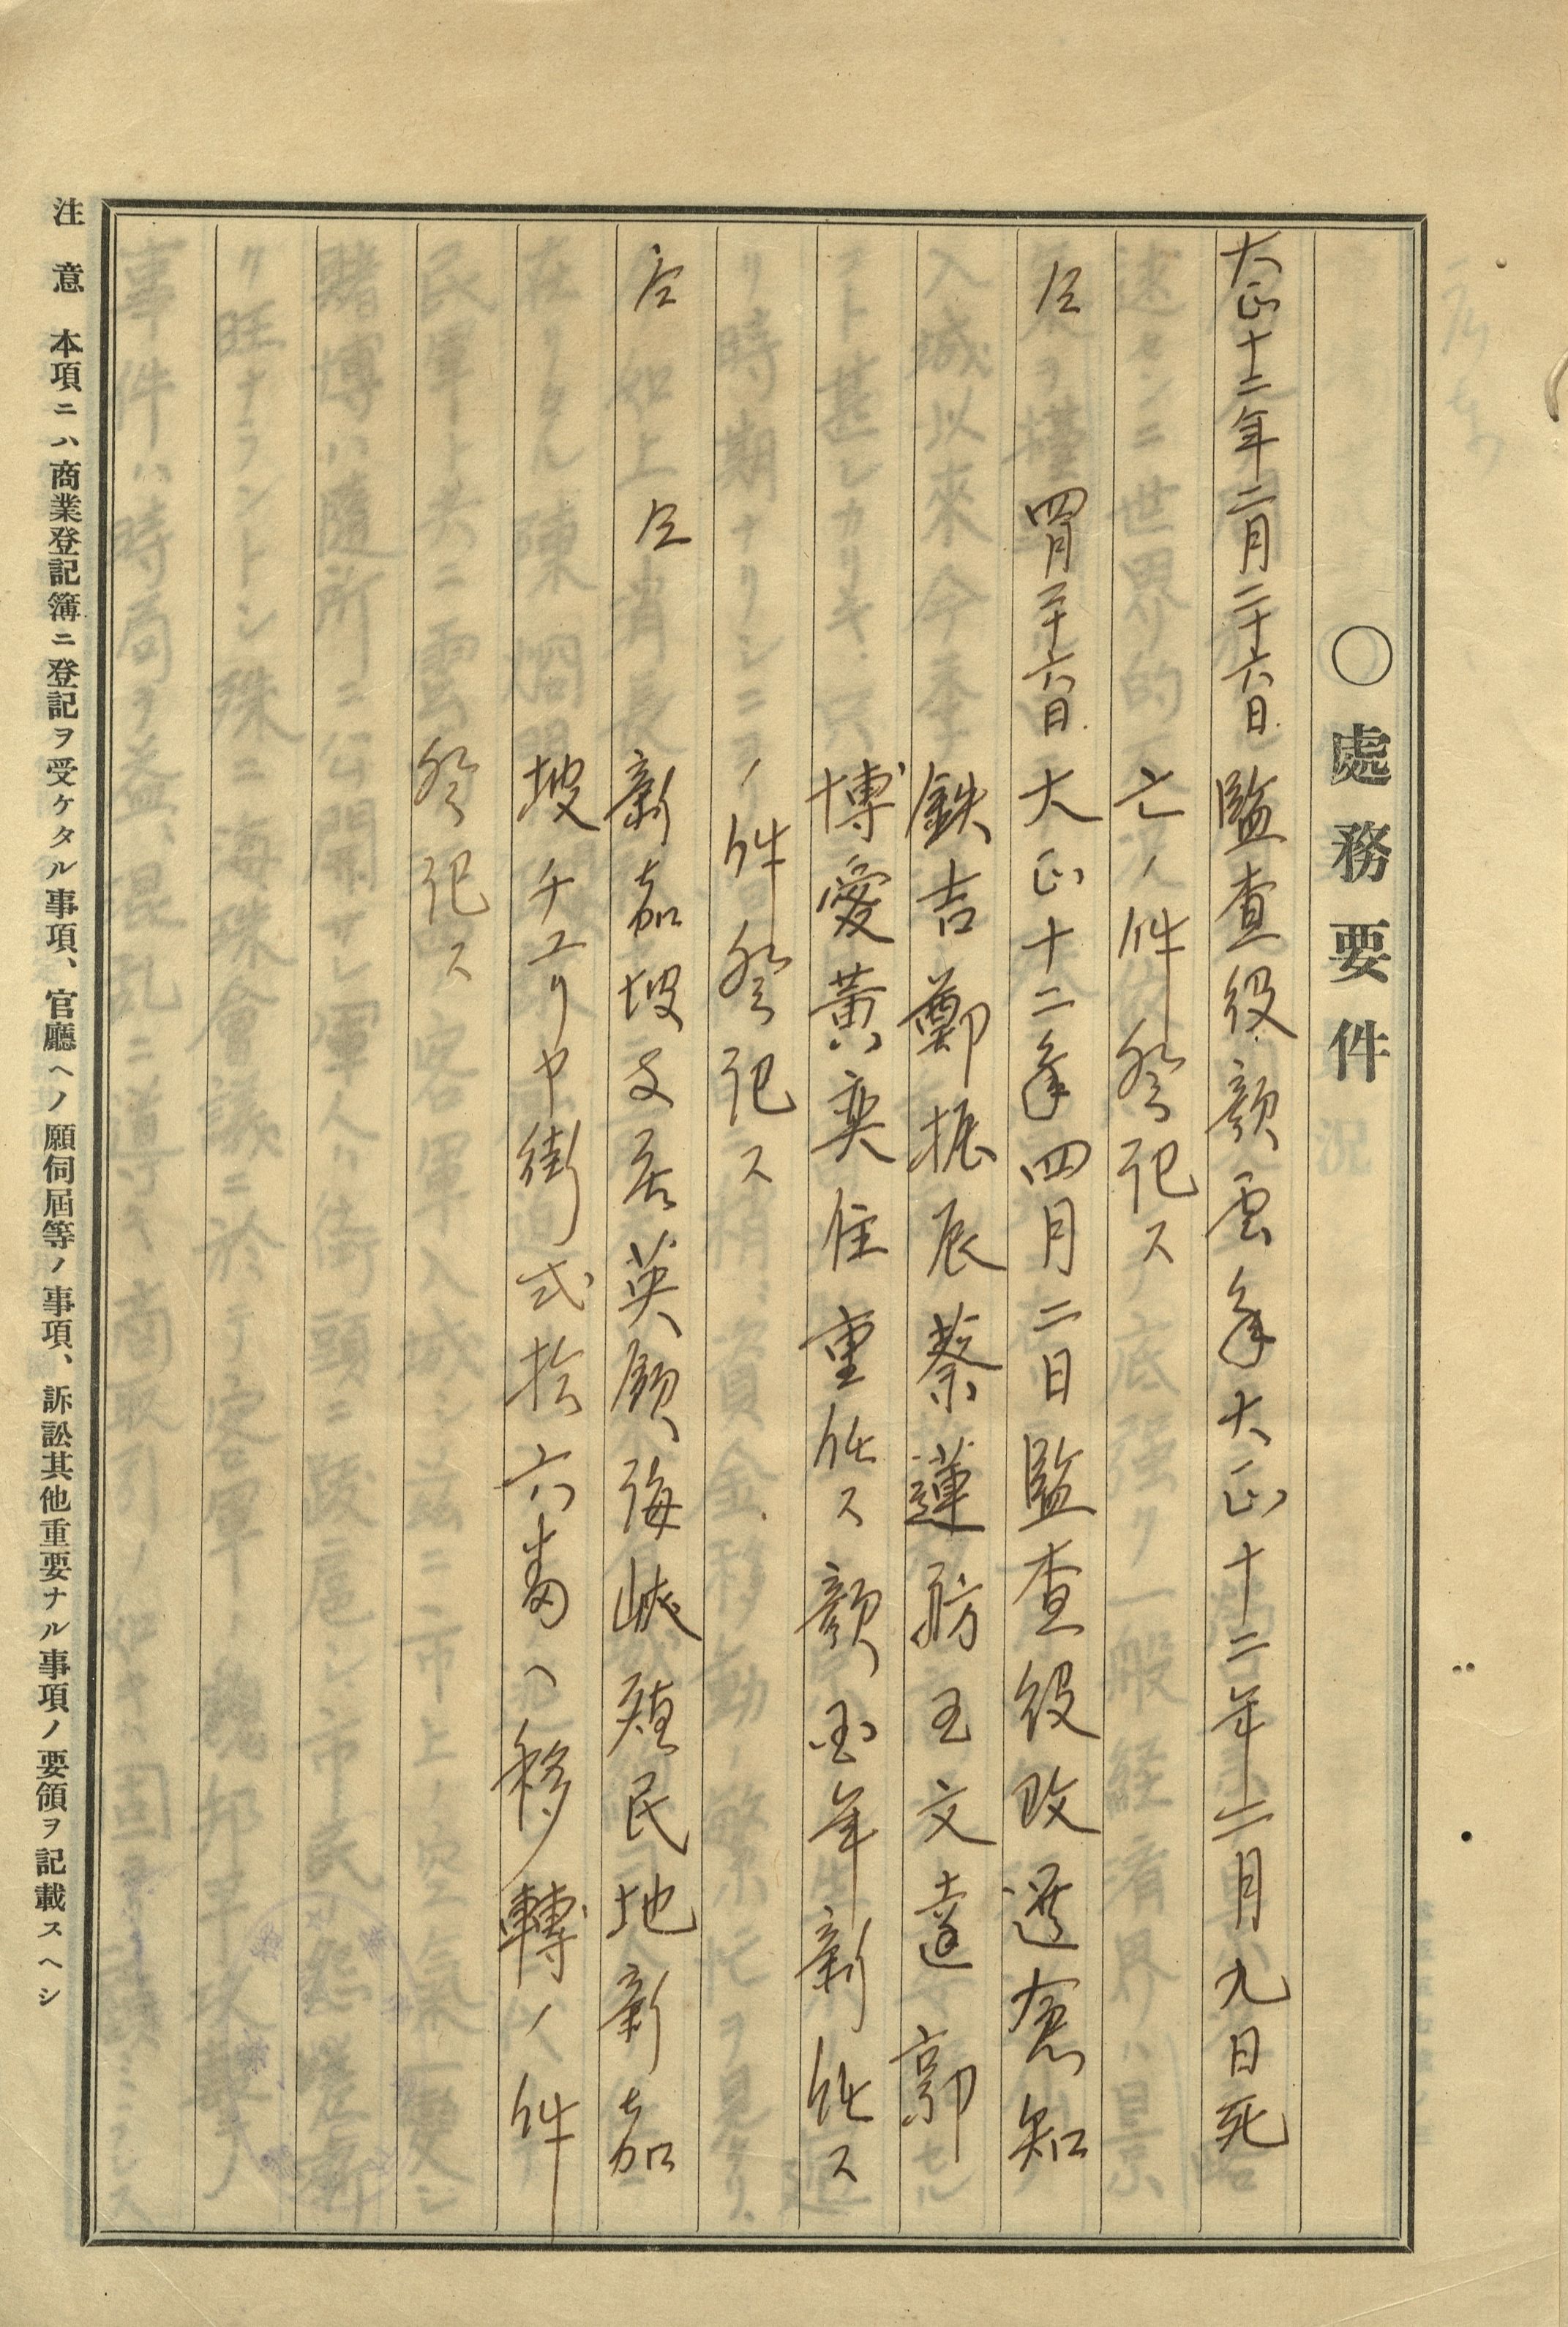 ○處務要件
大正十二年二月二十六日 監査役顏雲年大正十二年二月九日死
亡ノ件登記ス
仝 四月二十六日 大正十二年四月二日監査役改選倉知
鉄吉鄭拱辰蔡蓮舫王文達郭
博愛黃奕住重任ス顏国年新任ス
ノ件登記ス
仝 仝 新嘉坡支店英領海峽殖民地新嘉
坡チユリヤ街弐拾六番ヘ移轉ノ件
登記ス
注意 本項ニハ商業登記簿ニ登記ヲ受ケタル事項、官廳ヘノ願伺屆等ノ事項、訴訟其他重要ナル事項ノ要領ヲ記載スヘシ